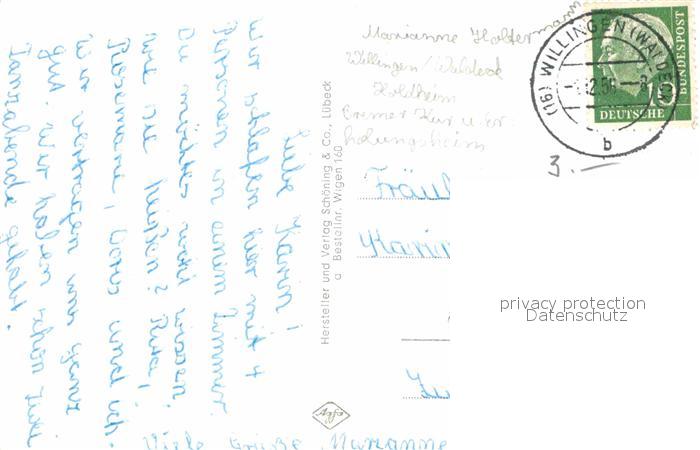 Liebe Karin!
wir schlafen hier mit 4
Personen in einem Zimmer
Du möchtest wohl wissen
wie die heißen? Rita,
Rosemarie, und ich.
Wir vertragen uns ganz
gut. Wir haben schon viele
Tanzabende gehabt.
Viele Grüße Marianne
Hersteller und Verlag Schöning & Co., Lübeck
a Bestellnr. Wigen 160
Marianne Holtermann
Willingen/Waldeck
Waldheim
Bremer Kur u. Er-
holungsheim
(16) WILLINGEN (WALDECK)
12.56
b
10
DEUTSCHE
BUNDESPOST
3.—
Fräul
Karin
privacy protection
Datenschutz